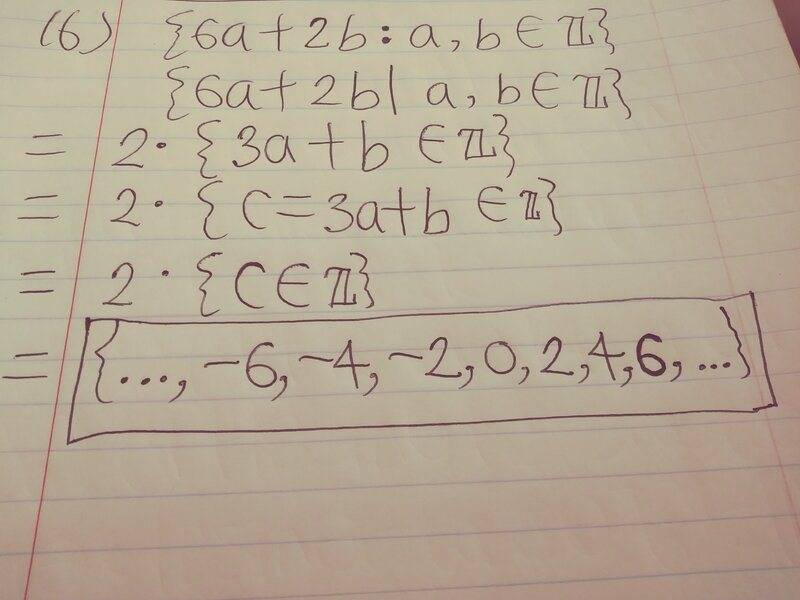 (6) {6a+2b: a, b ∈ ℤ}
{6a+2b| a, b ∈ ℤ}
= 2· {3a+b ∈ ℤ}
= 2· {C=3a+b ∈ ℤ}
= 2· {C ∈ ℤ}
= {..., -6, -4, -2, 0, 2, 4, 6, ...}